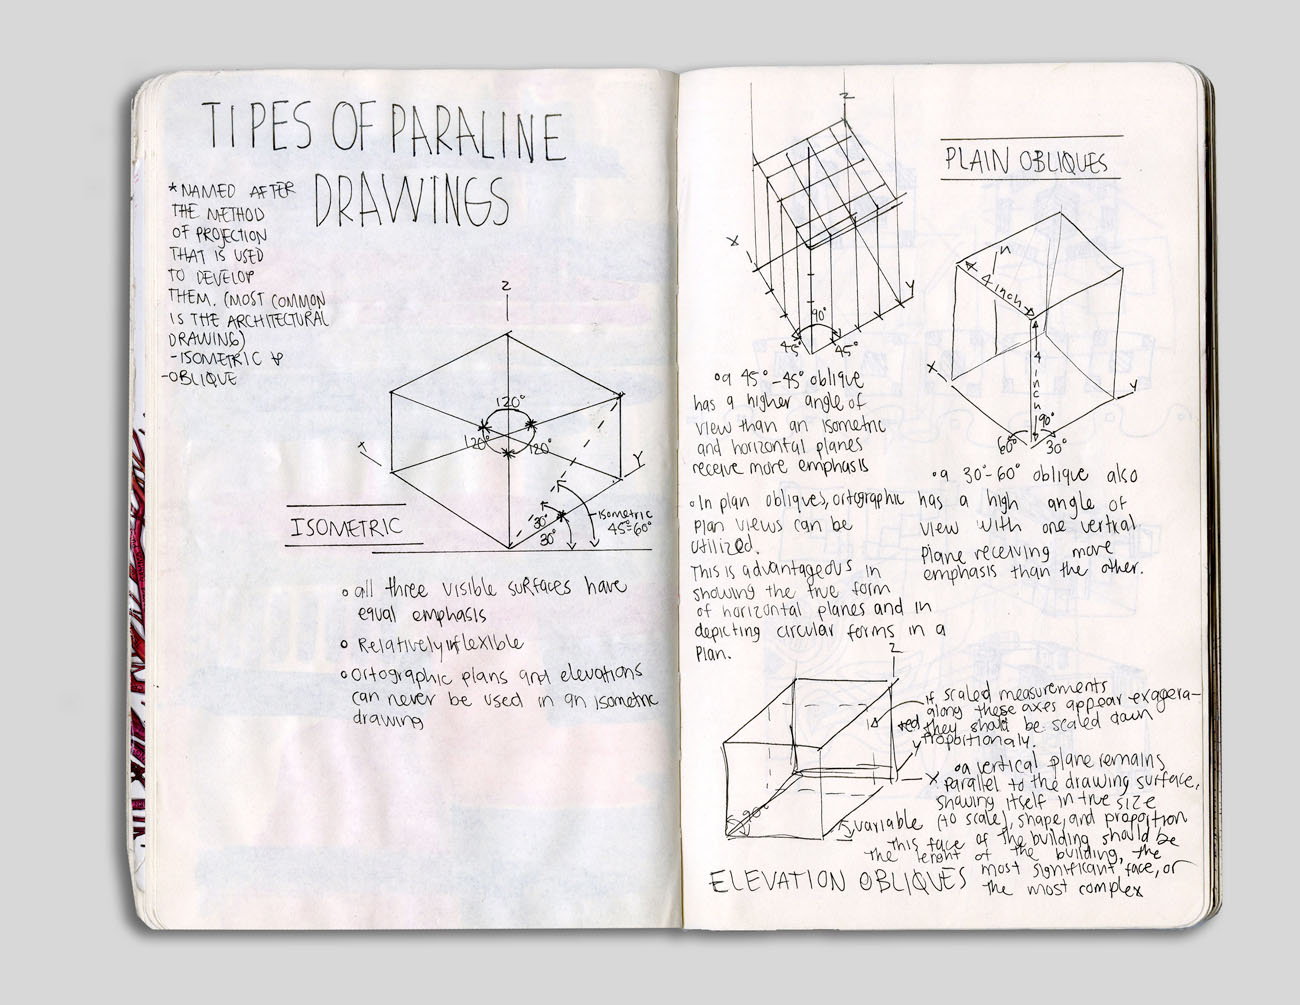 TIPES OF PARALINE
DRAWINGS
* NAMED AFTER
THE METHOD
OF PROJECTION
THAT IS USED
TO DEVELOP
THEM. (MOST COMMON
IS THE ARCHITECTURAL
DRAWING)
-ISOMETRIC &
-OBLIQUE
Z
120°
120°
120°
X
Y
ISOMETRIC
30°
30°
isometric
45°-60°
• all three visible surfaces have
equal emphasis
• Relatively inflexible
• Ortographic plans and elevations
can never be used in an isometric
drawing
Z
X
Y
90°
45°
45°
• a 45°-45° oblique
has a higher angle of
view than an isometric
and horizontal planes
receive more emphasis
• In plan obliques, ortographic
plan views can be
utilized.
This is advantageous in
showing the true form
of horizontal planes and in
depicting circular forms in a
plan.
PLAIN OBLIQUES
4 inch
4 inch
X
Y
90°
60°
30°
• a 30°-60° oblique also
has a high angle of
view with one vertical
plane receiving more
emphasis than the other.
Z
if scaled measurements
along these axes appear exagera-
ted they should be scaled down
proportionaly.
Y
X
• a vertical plane remains
parallel to the drawing surface,
showing itself in true size
(to scale), shape, and proportion
variable
This face of the building should be
the lenght of the building, the
most significant face, or
the most complex
ELEVATION OBLIQUES